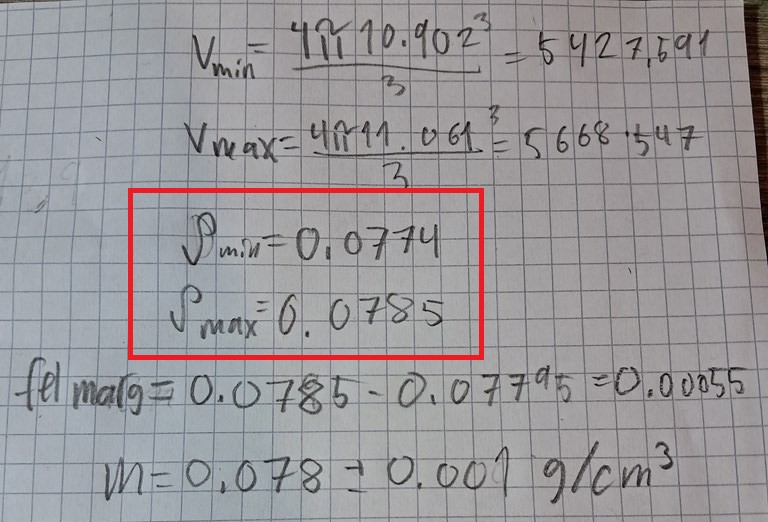 Vmin = 4π10.902³/3 = 5427,591
Vmax = 4π11.061³/3 = 5668.547
ρmin = 0.0774
ρmax = 0.0785
felmarg = 0.0785 - 0.07795 = 0.00055
m = 0.078 ± 0.001 g/cm³